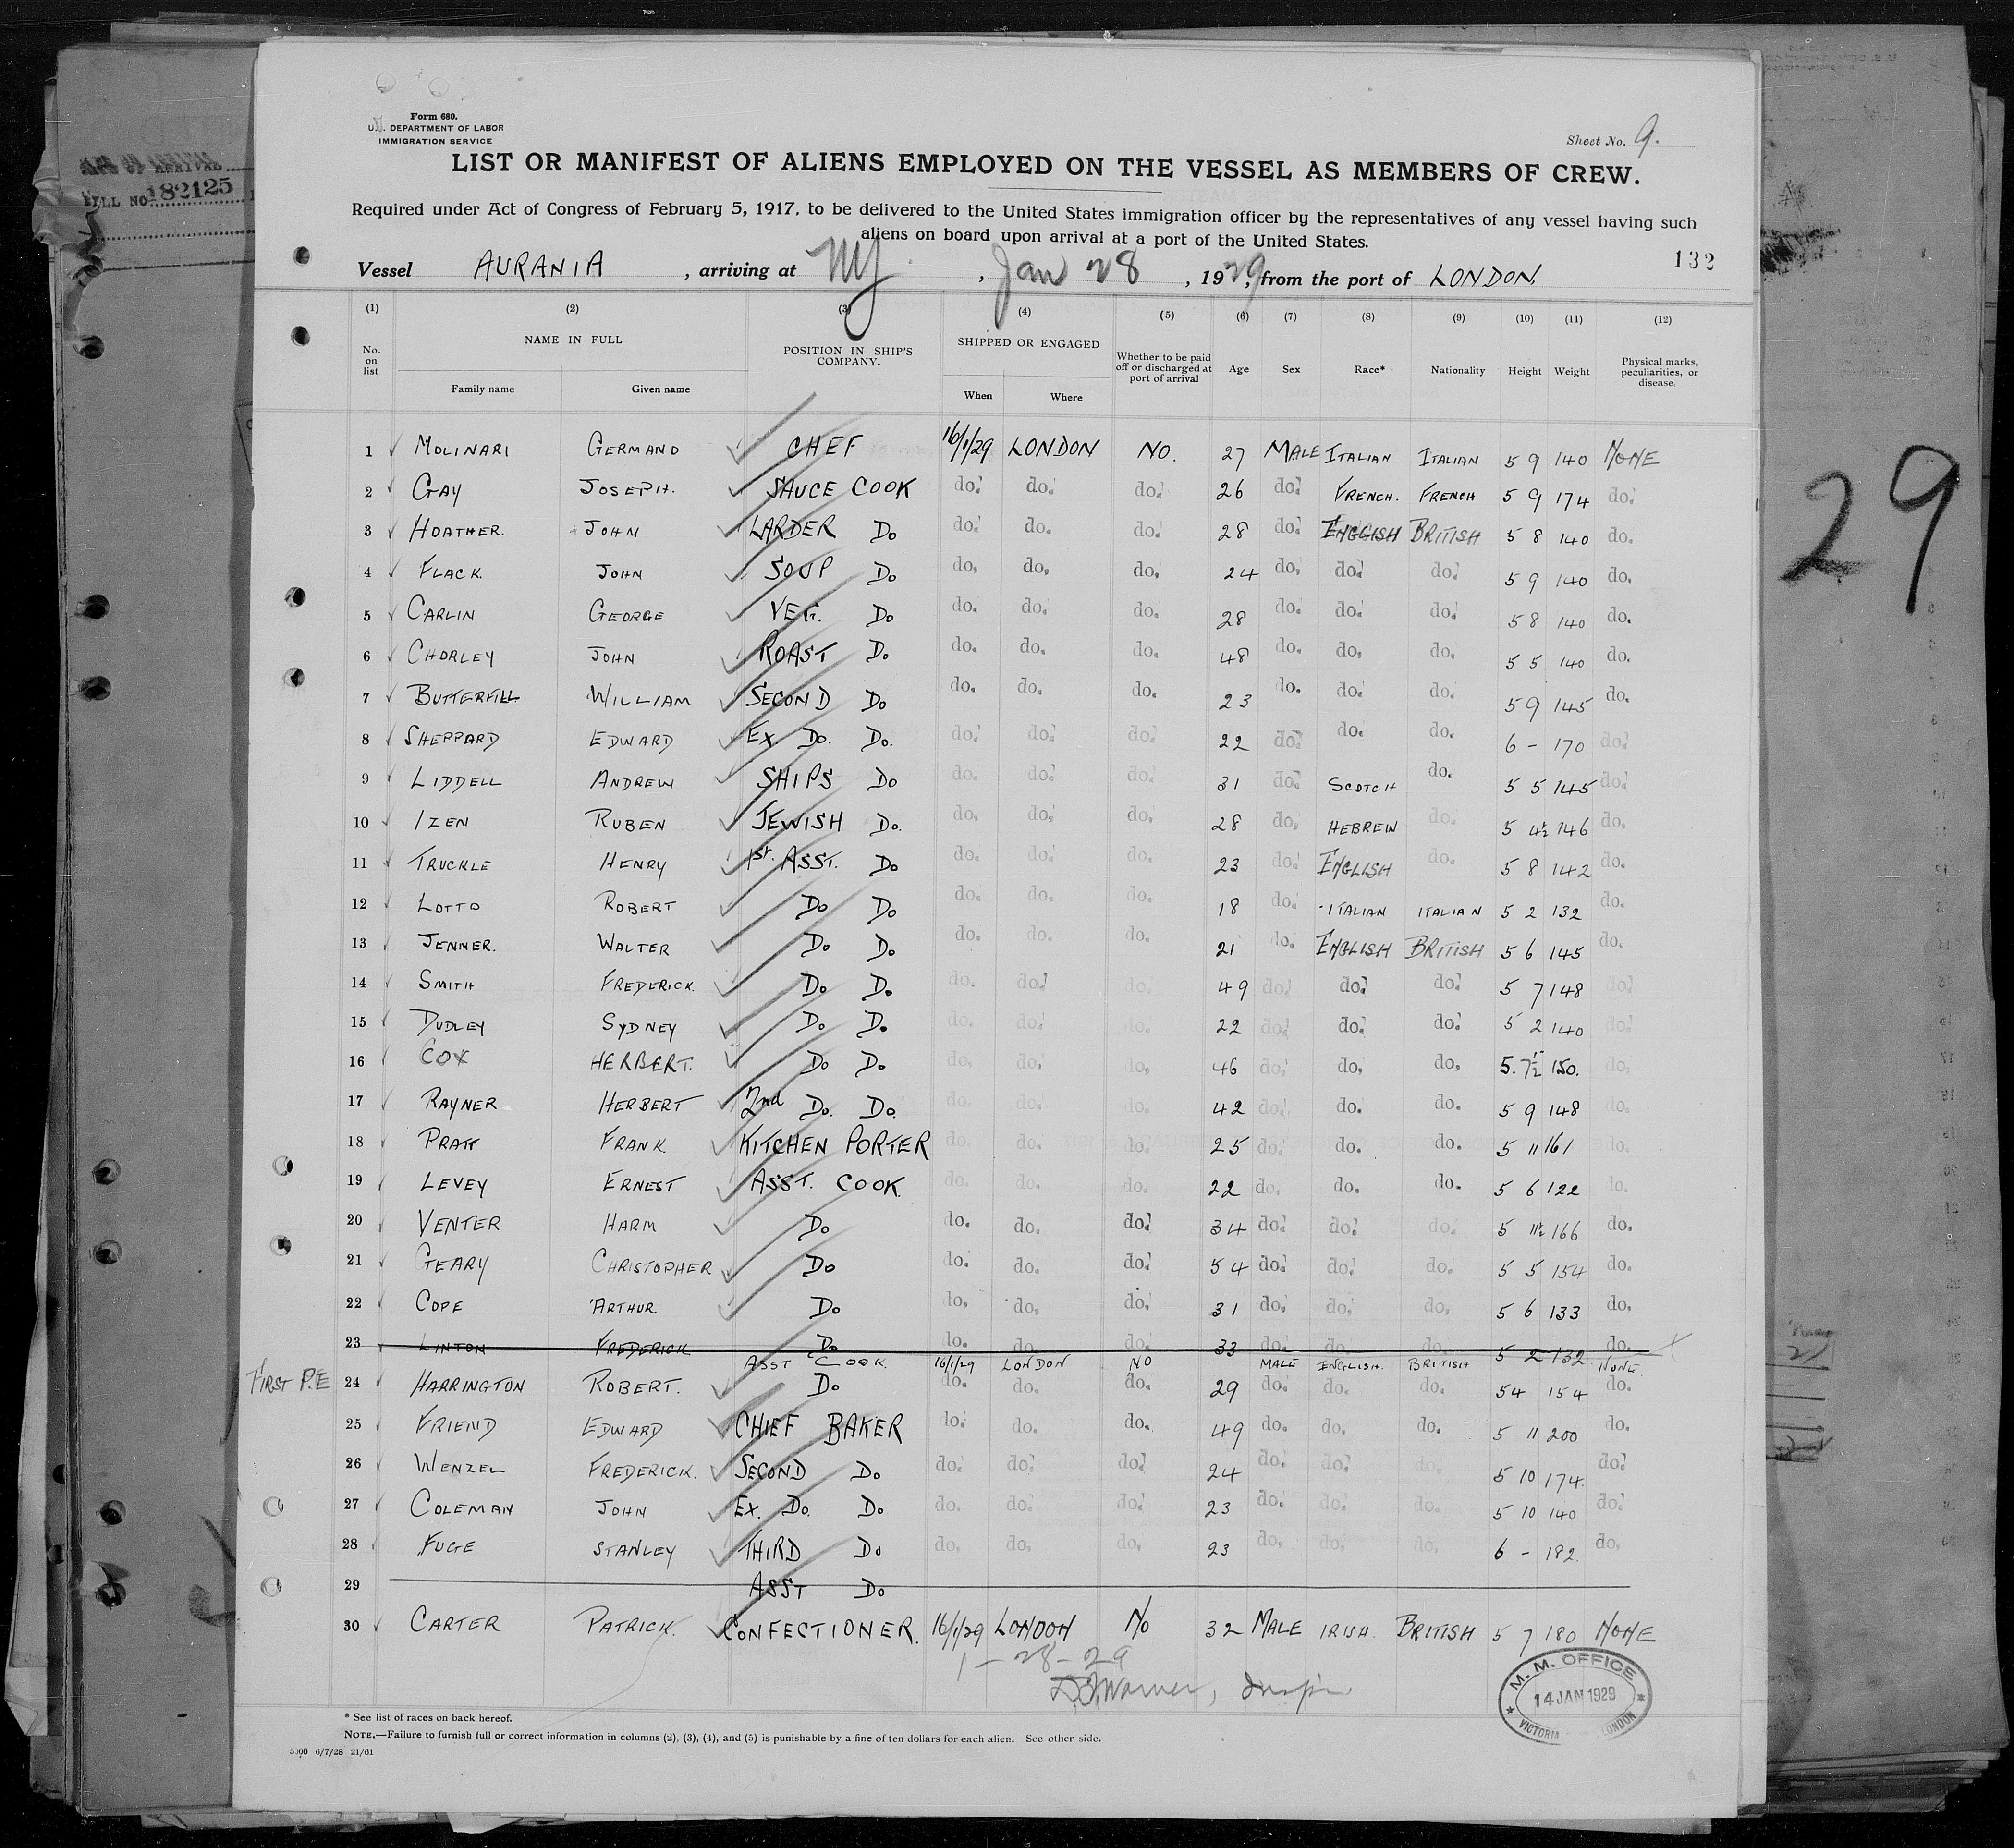 Form 680.
U.S. DEPARTMENT OF LABOR
IMMIGRATION SERVICE
Sheet No. 9.
LIST OR MANIFEST OF ALIENS EMPLOYED ON THE VESSEL AS MEMBERS OF CREW.
Required under Act of Congress of February 5, 1917, to be delivered to the United States immigration officer by the representatives of any vessel having such
aliens on board upon arrival at a port of the United States.
132
Vessel AURANIA, arriving at NY, Jan 28, 1929, from the port of LONDON.
(1) (2) (3) (4) (5) (6) (7) (8) (9) (10) (11) (12)
No. on list NAME IN FULL Family name Given name POSITION IN SHIP'S COMPANY. SHIPPED OR ENGAGED When Where Whether to be paid off or discharged at port of arrival Age Sex Race* Nationality Height Weight Physical marks, peculiarities, or disease.
1 MOLINARI GERMAND CHEF 16/1/29 LONDON NO. 27 MALE ITALIAN ITALIAN 5 9 140 NONE
2 GAY JOSEPH. SAUCE COOK do. do. do. 26 do. FRENCH. FRENCH 5 9 174 do.
3 HOATHER. JOHN LARDER DO do. do. do. 28 do. ENGLISH BRITISH 5 8 140 do.
4 FLACK. JOHN SOUP DO do. do. do. 24 do. do. do. 5 9 140 do.
5 CARLIN GEORGE VEG. DO do. do. do. 28 do. do. do. 5 8 140 do.
6 CHORLEY JOHN ROAST DO do. do. do. 48 do. do. do. 5 5 140 do.
7 BUTTERFILL WILLIAM SECOND DO do. do. do. 23 do. do. do. 5 9 145 do.
8 SHEPPARD EDWARD EX. DO. DO. do. do. do. 22 do. do. do. 6 - 170 do.
9 LIDDELL ANDREW SHIPS DO do. do. do. 31 do. SCOTCH do. 5 5 145 do.
10 IZEN RUBEN JEWISH DO. do. do. do. 28 do. HEBREW do. 5 4½ 146 do.
11 TRUCKLE HENRY 1ST. ASST. DO do. do. do. 23 do. ENGLISH do. 5 8 142 do.
12 LOTTO ROBERT DO DO do. do. do. 18 do. ITALIAN ITALIAN 5 2 132 do.
13 JENNER. WALTER DO DO do. do. do. 21 do. ENGLISH BRITISH 5 6 145 do.
14 SMITH FREDERICK. DO DO do. do. do. 49 do. do. do. 5 7 148 do.
15 DUDLEY SYDNEY DO DO do. do. do. 22 do. do. do. 5 2 140 do.
16 COX HERBERT. DO DO do. do. do. 46 do. do. do. 5. 7½ 150. do.
17 RAYNER HERBERT 2nd DO. DO do. do. do. 42 do. do. do. 5 9 148 do.
18 PRATT FRANK. KITCHEN PORTER do. do. do. 25 do. do. do. 5 11 161 do.
19 LEVEY ERNEST ASST. COOK. do. do. do. 22 do. do. do. 5 6 122 do.
20 VENTER HARM DO do. do. do. 34 do. do. do. 5 11½ 166 do.
21 GEARY CHRISTOPHER DO do. do. do. 54 do. do. do. 5 5 154 do.
22 COPE ARTHUR DO do. do. do. 31 do. do. do. 5 6 133 do.
23 LINTON FREDERICK DO do. do. do. 33 do. do. do. 5 2 132 do.
ASST COOK. 16/1/29 LONDON NO MALE ENGLISH. BRITISH NONE.
FIRST P.E 24 HARRINGTON ROBERT. DO do. do. do. 29 do. do. do. 5 4 154 do.
25 FRIEND EDWARD CHIEF BAKER do. do. do. 49 do. do. do. 5 11 200 do.
26 WENZEL FREDERICK. SECOND DO do. do. do. 24 do. do. do. 5 10 174. do.
27 COLEMAN JOHN EX. DO. DO do. do. do. 23 do. do. do. 5 10 140 do.
28 FUGE STANLEY THIRD DO do. do. do. 23 do. do. do. 6 - 182. do.
29 ASST DO
30 CARTER PATRICK. CONFECTIONER. 16/1/29 LONDON NO 32 MALE IRISH. BRITISH 5 7 180 NONE
1-28-29
Warner, Insp
M. M. OFFICE
14 JAN 1929
VICTORIA LONDON
* See list of races on back hereof.
NOTE.—Failure to furnish full or correct information in columns (2), (3), (4), and (5) is punishable by a fine of ten dollars for each alien. See other side.
5000 6/7/28 21/61
182125
29